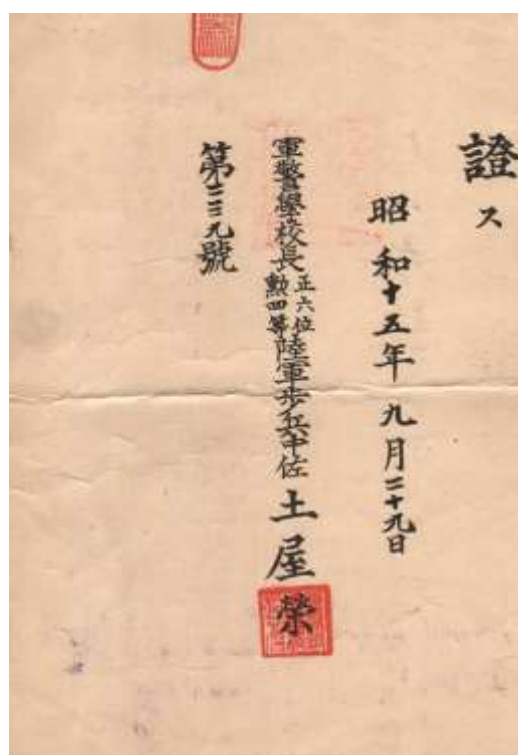 證ス
昭和十五年九月二十九日
軍警學校長正六位勲四等陸軍歩兵中佐土屋榮
第三三九號